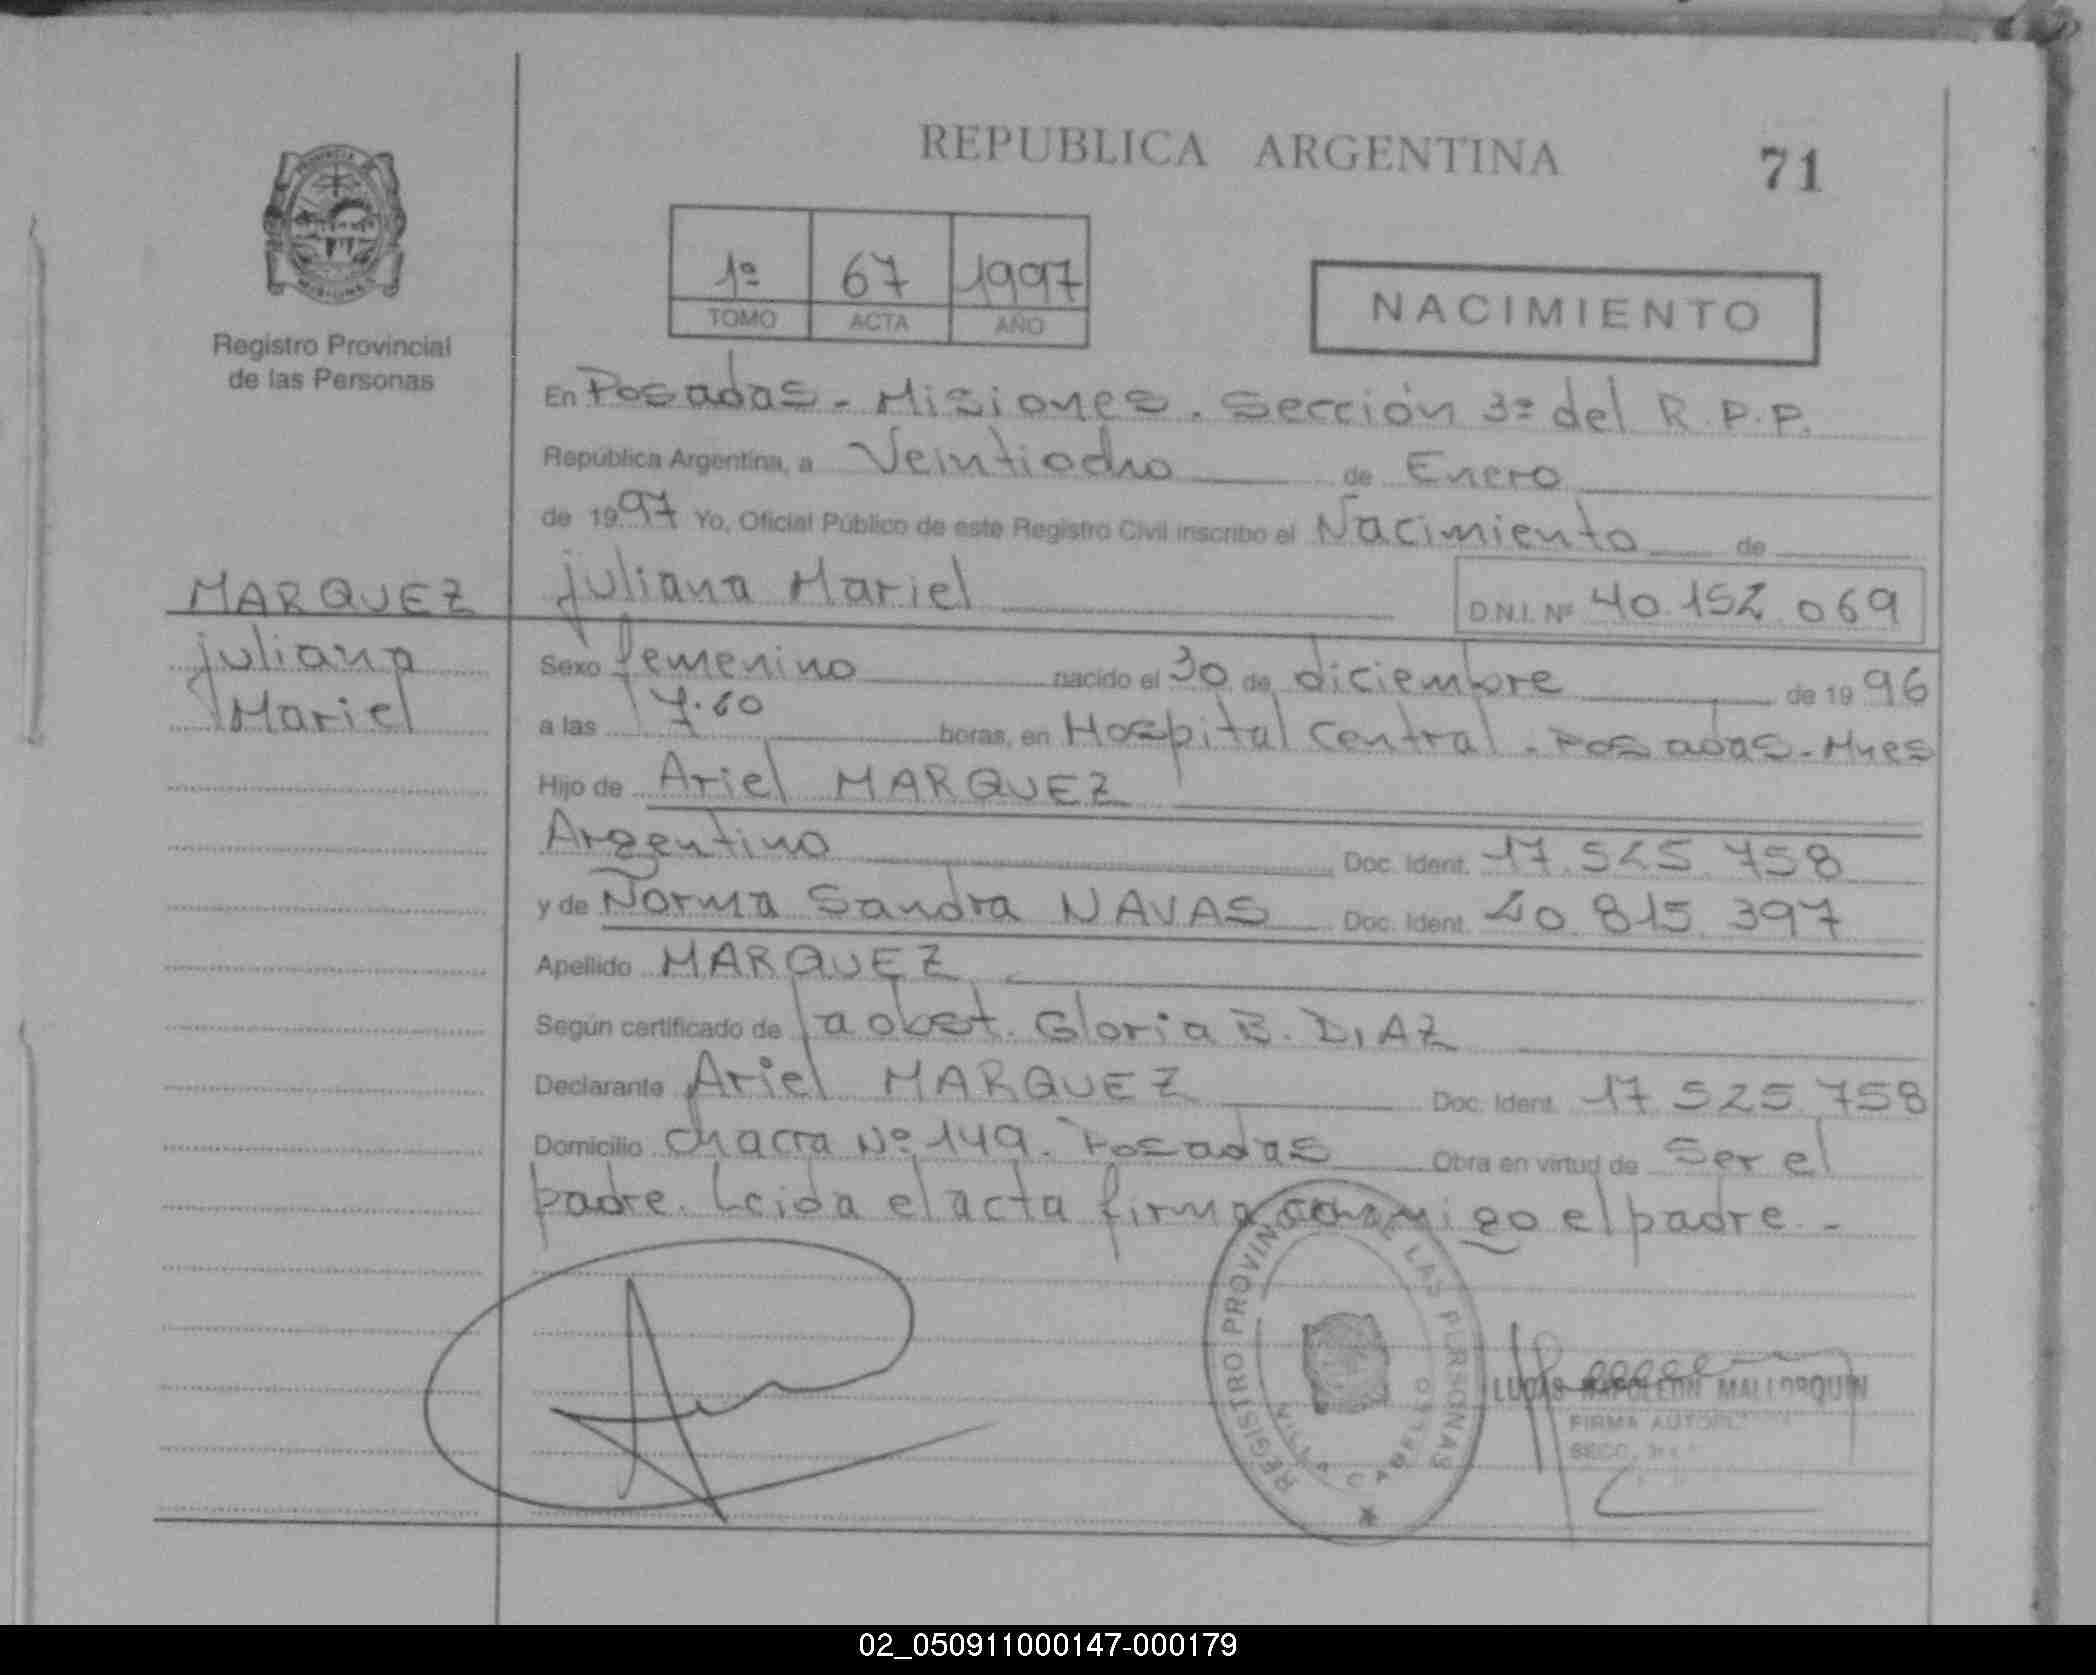 REPUBLICA ARGENTINA
71
1º 67 1997
TOMO ACTA AÑO
NACIMIENTO
Registro Provincial
de las Personas
En Posadas - Misiones. Sección 3ª del R.P.P.
República Argentina, a Veintiocho de Enero
de 1997 Yo, Oficial Público de este Registro Civil inscribo el Nacimiento de
MARQUEZ
Juliana Mariel D.N.I. Nº 40.152.069
Juliana
Mariel
Sexo femenino nacido el 30 de diciembre de 1996
a las horas, en Hospital Central. Posadas - Mnes
Hijo de Ariel MARQUEZ
Argentino Doc. Ident. 17.525.758
y de Norma Sandra NAVAS Doc. Ident. 20.815.397
Apellido MARQUEZ
Según certificado de la obst. Gloria B. DIAZ
Declarante Ariel MARQUEZ Doc. Ident. 17.525.758
Domicilio Chacra Nº 149. Posadas Obra en virtud de ser el
padre. Leida el acta firma conmigo el padre. -
REGISTRO PROVINCIAL DE LAS PERSONAS
VILLA CABELLO
LUCAS NAPOLEON MALLORQUIN
FIRMA
SECC. 3ª
02_050911000147-000179